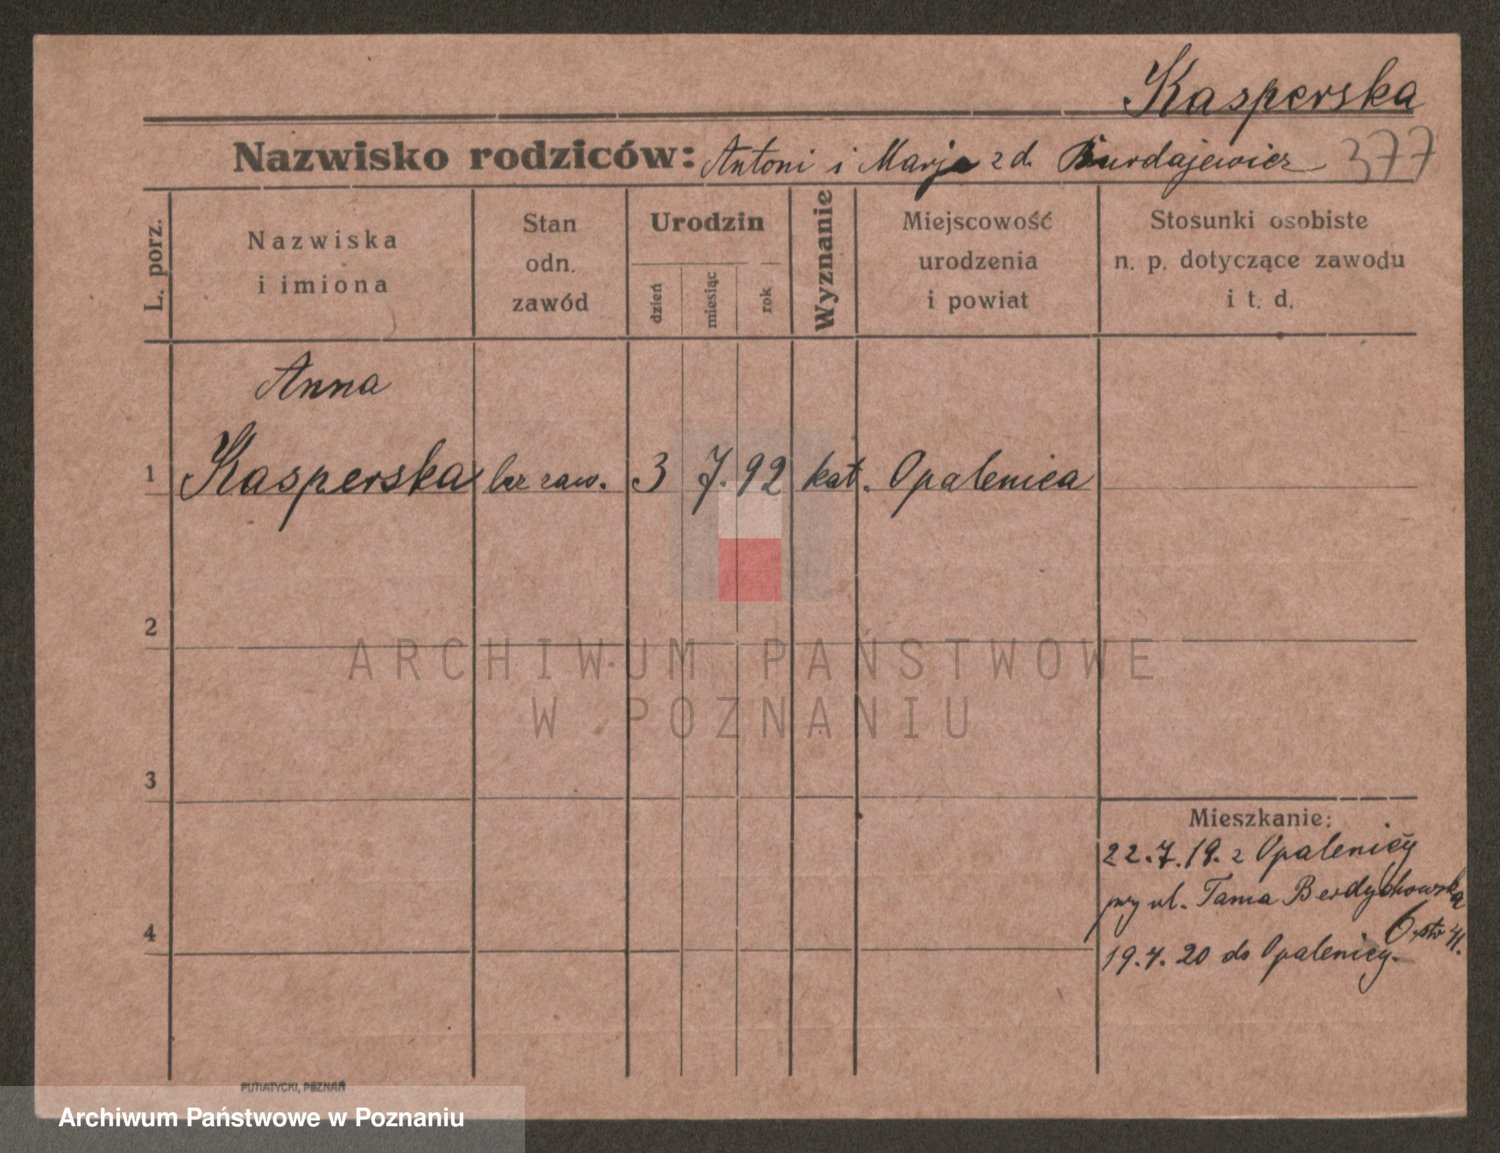 Kasperska
Nazwisko rodziców: Antoni i Marja z d. Burdajewicz 377
L. porz.
Nazwiska
i imiona
Stan
odn.
zawód
Urodzin
dzień
miesiąc
rok
Wyznanie
Miejscowość
urodzenia
i powiat
Stosunki osobiste
n. p. dotyczące zawodu
i t. d.
Anna
1 Kasperska bez zaw. 3 7. 92 kat. Opalenica
2
ARCHIWUM PAŃSTWOWE
W POZNANIU
3
Mieszkanie:
22.7.19. z Opalenicy
przy ul. Tama Berdychowska
6
4
19.4.20 do Opalenicy.
PUTIATYCKI, POZNAŃ
Archiwum Państwowe w Poznaniu